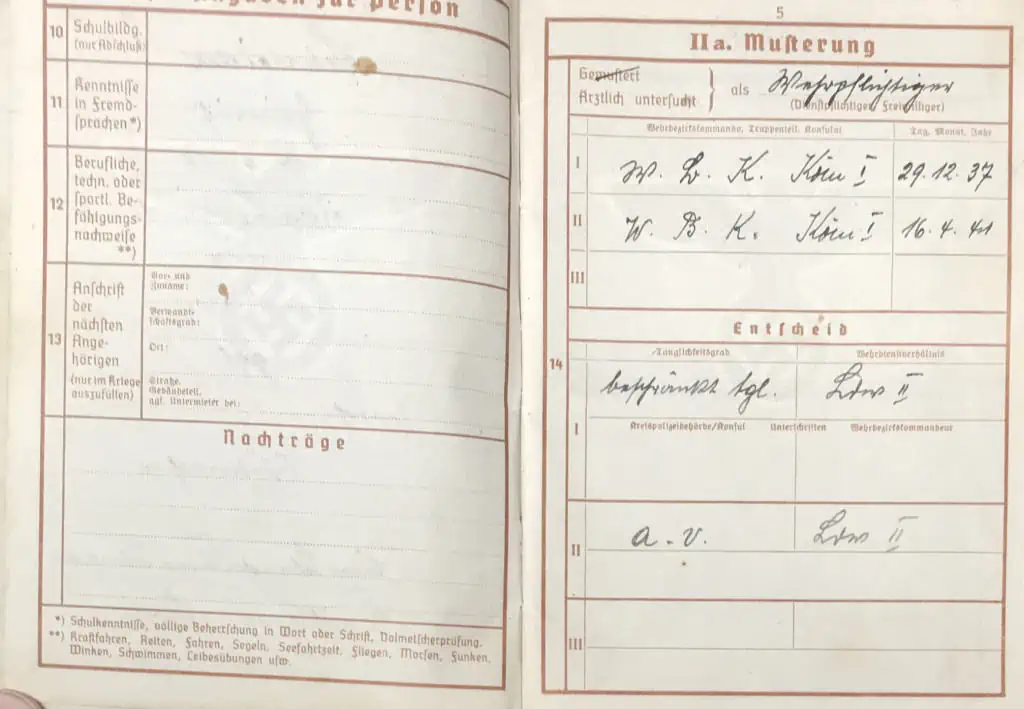 Angaben zur Person
10 Schulbildg.
(nur Abschluß)
11 Kenntnisse
in Fremd-
sprachen*)
12 Berufliche,
techn. oder
sportl. Be-
fähigungs-
nachweise
**)
13 Anschrift
der
nächsten
Ange-
hörigen
(nur im Kriege
auszufüllen)
Vor- und
Zuname:
Verwandt-
schaftsgrad:
Ort:
Straße,
Gebäudeteil,
ggf. Untermieter bei:
Nachträge
*) Schulkenntnisse, völlige Beherrschung in Wort oder Schrift, Dolmetscherprüfung.
**) Kraftfahren, Reiten, Fahren, Segeln, Seefahrtzeit, Fliegen, Morsen, Funken,
Winken, Schwimmen, Leibesübungen usw.
5
IIa. Musterung
Gemustert
Ärztlich untersucht
als Wehrpflichtiger
(Dienstpflichtiger, Freiwilliger)
Wehrbezirkskommando, Truppenteil, Konsulat Tag, Monat, Jahr
I W. B. K. Köln I 29. 12. 37
II W. B. K. Köln I 16. 4. 41
III
Entscheid
14
Tauglichkeitsgrad Wehrdienstverhältnis
beschränkt tgl. Ldw II
I
Kreispolizeibehörde/Konsul Unterschriften Wehrbezirkskommandeur
II a. v. Ldw II
III